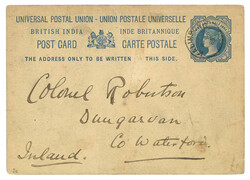 UNIVERSAL POSTAL UNION - UNION POSTALE UNIVERSELLE
BRITISH INDIA INDE BRITANNIQUE
POST CARD CARTE POSTALE
THE ADDRESS ONLY TO BE WRITTEN — THIS SIDE.
Colonel Robertson
Dungarvan
Co Waterford.
Ireland.